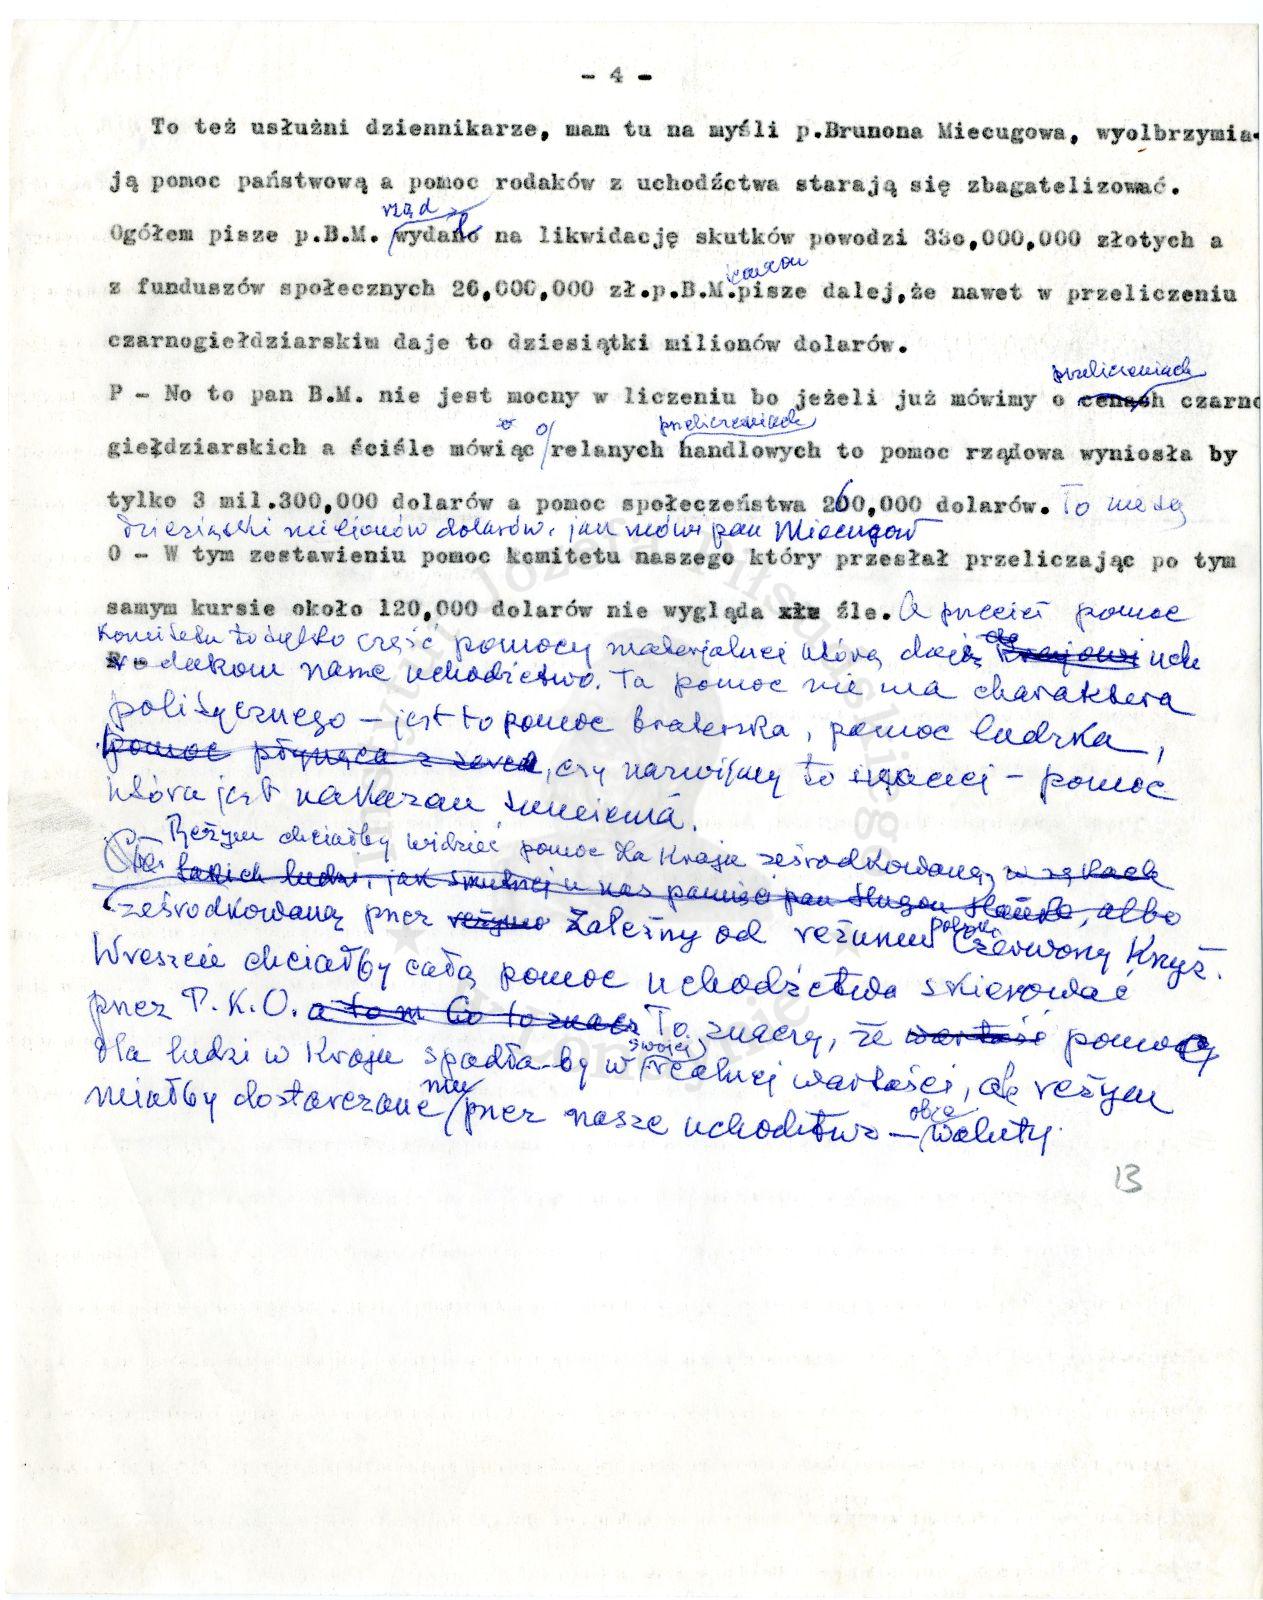 - 4 -
To też usłużni dziennikarze, mam tu na myśli p.Brunona Miecugowa, wyolbrzymia-
ją pomoc państwową a pomoc rodaków z uchodźctwa starają się zbagatelizować.
rząd
Ogółem pisze p.B.M. wydał na likwidację skutków powodzi 330,000,000 złotych a
z funduszów społecznych 26,000,000 zł.p.B.M.pisze dalej,że nawet w przeliczeniu
czarnogiełdziarskim daje to dziesiątki milionów dolarów.
przeliczeniach
P - No to pan B.M. nie jest mocny w liczeniu bo jeżeli już mówimy o cenach czarno
o przeliczeniach
giełdziarskich a ściśle mówiąc relanych handlowych to pomoc rządowa wyniosła by
tylko 3 mil.300,000 dolarów a pomoc społeczeństwa 260,000 dolarów. To nie są
dziesiątki milionów dolarów, jak mówi pan Miecugow
O - W tym zestawieniu pomoc komitetu naszego który przesłał przeliczając po tym
samym kursie około 120,000 dolarów nie wygląda źle. A przecież pomoc
Komitetu to tylko część pomocy materjalnej którą daje Krajowi
rodakom nasze uchodźctwo. Ta pomoc nie ma charakteru
politycznego - jest to pomoc braterska, pomoc ludzka,
pomoc płynąca z serca, czy nazwijmy to inaczej - pomoc
która jest nakazem sumienia.
Reżym chciałby widzieć pomoc dla Kraju ześrodkowaną w rękach
takich ludzi, jak pan albo
ześrodkowaną przez zależny od reżymu Czerwony Krzyż.
polski
Wreszcie chciałby całą pomoc uchodźctwa skierować
przez P.K.O. Co to znaczy To znaczy, że wartość pomocy
swojej
dla ludzi w Kraju spadła-by w realnej wartości, ale reżym
mu obce
miałby dostarczane przez nasze uchodźtwo - waluty.
13
Instytut Józefa Piłsudskiego
w Londynie